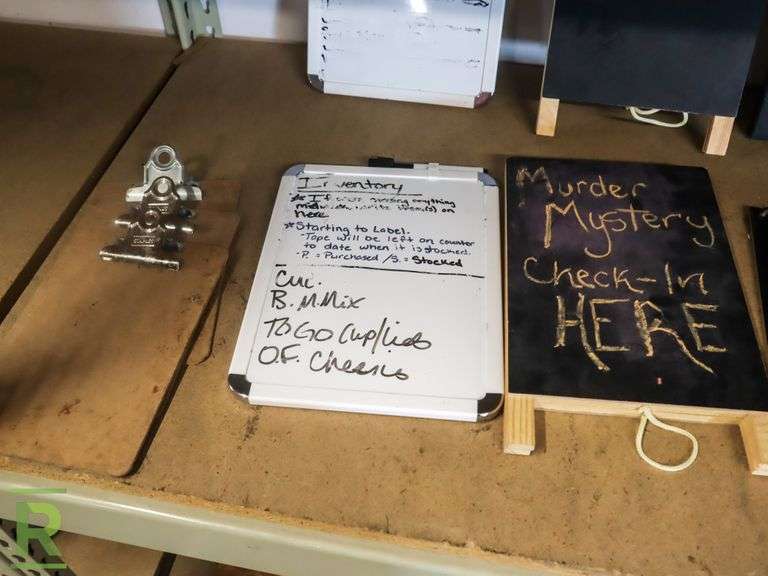 Inventory
* If
anything
on
here
* Starting to Label.
- Tape will be left on counter
to date when it is stocked.
- P. = Purchased / S. = Stocked
B. M. Mix
To Go Cup/Lids
O.F.
Murder
Mystery
Check-In
HERE
R